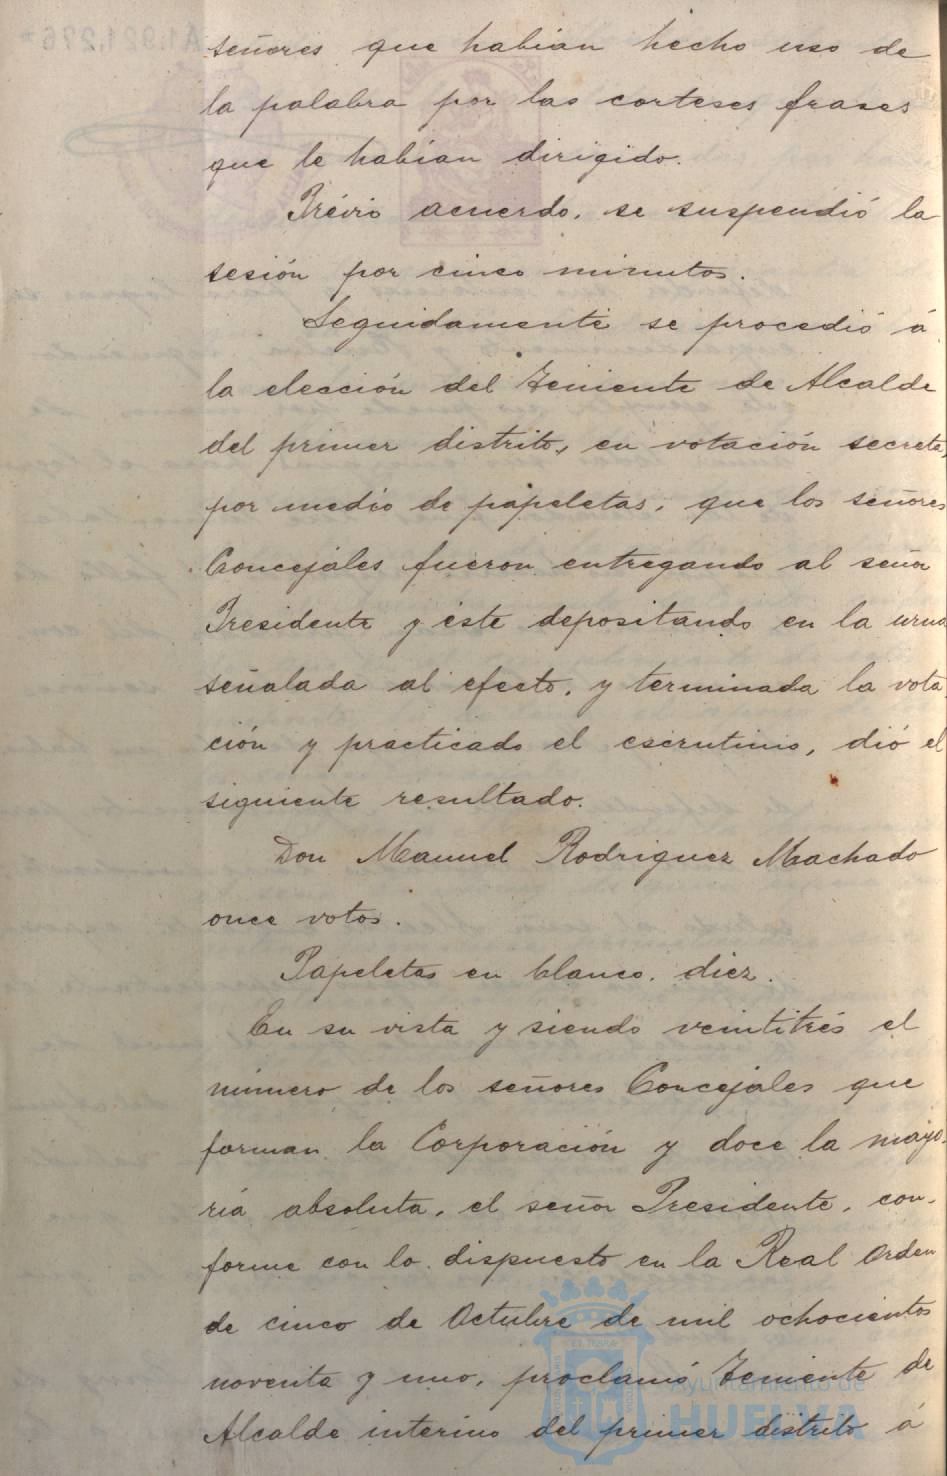 señores que habian hecho uso de
la palabra por las corteses frases
que le habian dirigido.
Prévio acuerdo, se suspendió la
sesión por cinco minutos.
Seguidamente se procedió á
la elección del Teniente de Alcalde
del primer distrito, en votación secreta,
por medio de papeletas, que los señores
Concejales fueron entregando al señor
Presidente y éste depositando en la urna
señalada al efecto, y terminada la vota
ción y practicado el escrutinio, dió el
siguiente resultado.
Don Manuel Rodriguez Machado
once votos.
Papeletas en blanco, diez.
En su vista y siendo veintitrés el
número de los señores Concejales que
forman la Corporación y doce la mayo-
ría absoluta, el señor Presidente, con-
forme con lo dispuesto en la Real Orden
de cinco de Octubre de mil ochocientos
noventa y uno, proclamó Teniente de
Alcalde interino del primer distrito á
Ayuntamiento de
HUELVA